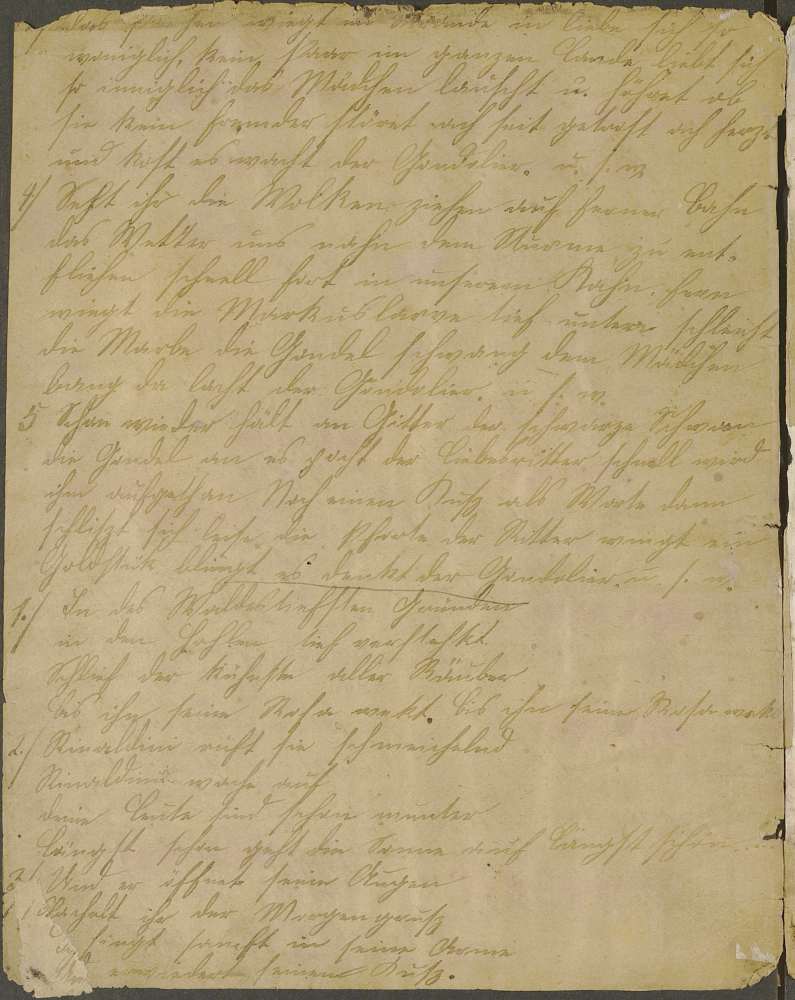 wiegt im in Liebe sich so
woniglich, kein Paar im ganzen Lande liebt sich
so inniglich das Mädchen lauscht u. ob
sie kein fremder störet ach seit getrost ach herzt
und kost es wacht der Gondolier. u. s. w
4/ Seht ihr die Wolken ziehen auf ferner Bahn
das Wetter uns nahn dem Sturme zu ent-
fliehen schnell fort in unserem Kahn. fern
wiegt die Markus tief unten schleicht
die die Gondel schwang dem Mädchen
bang da lacht der Gondolier. u s. w.
5 Schon wieder hält am Gitter der schwarze Schwan
die Gondel an es pocht der Liebesritter schnell wird
ihm aufgethan Noch einen Kuß als Worte dann
schließt sich leise die Pforte der Ritter wingt ein
Goldstük blingt es denkt der Gondolier. u. s. w.
1./ In des Waldes tiefsten Gründen
in den Hohlen tief verstekt
Schlief der kühnste aller Räuber
bis ihn seine Rosa wekt. bis ihn seine Rosa wekt
2./ Rinaldini ruft sie schmeichelnd
Rinaldini wache auf
deine Leute sind schon munter
Längst schon geht die Sonne auf Längst schon
3 Und er öffnet seine Augen
ihr der Morgengruß
sanft in seine Arme
erwiedert seinen Kuß.